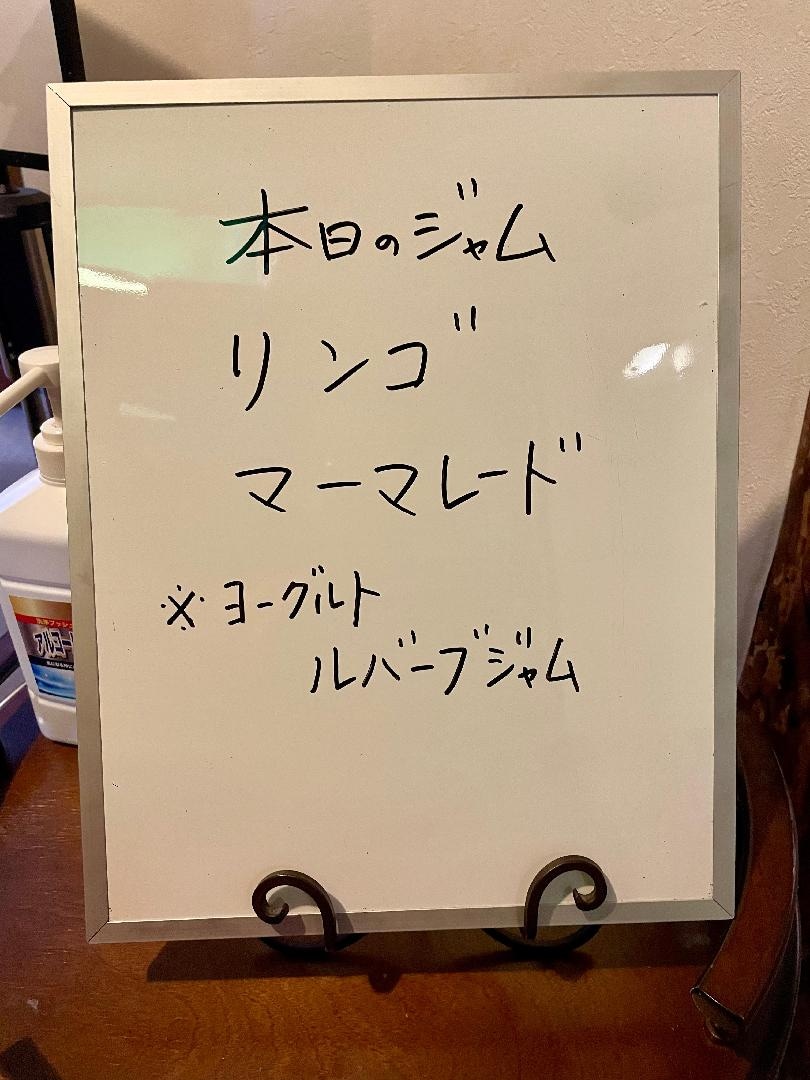 本日のジャム
リンゴ
マーマレード
※ヨーグルト
ルバーブジャム